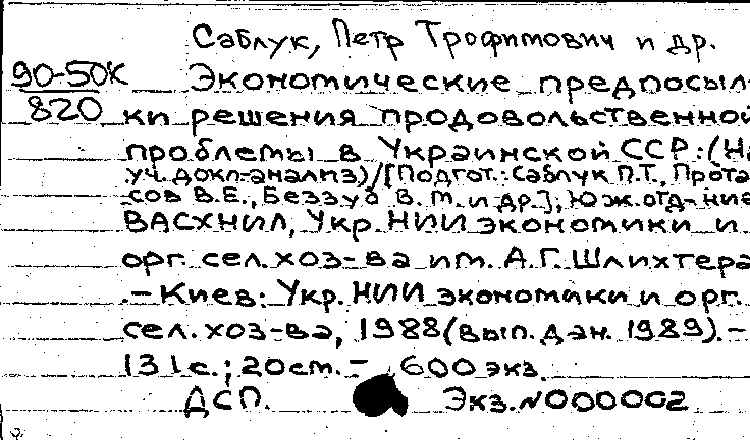 Саблук, Петр Трофимович и др.
90-50К Экономические предпосыл-
820 ки решения продовольственной
проблемы в Украинской ССР: (На
уч. докл.-анализ)/[Подгот.: Саблук П.Т., Прота
сов В.Е., Беззуб В.М. и др.]; Юж. отд-ние
ВАСХНИЛ, Укр. НИИ экономики и
орг. сел. хоз-ва им. А.Г. Шлихтера
.-Киев: Укр. НИИ экономики и орг.
сел. хоз-ва, 1988 (вып. дан. 1989).-
131с.; 20см.- 600 экз.
ДСП. Экз. №000002